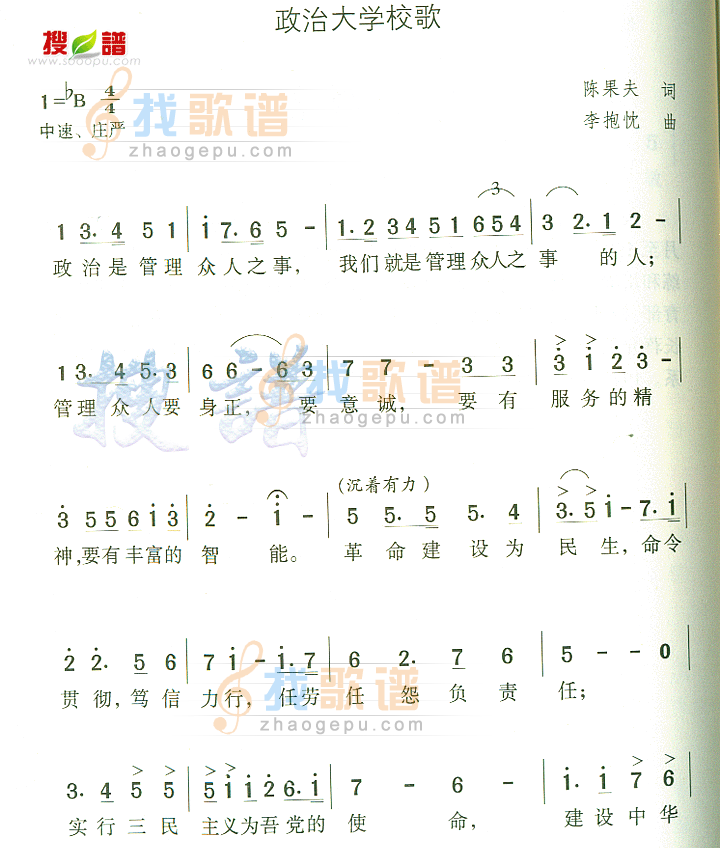 政治大学校歌
搜谱
www.sooopu.com
1=♭B 4/4
中速、庄严
陈果夫 词
李抱忱 曲
找歌谱
zhaogepu.com
1 3. 4 5 1 | i 7. 6 5 - | 1. 2 3 4 5 1 6 5 4 | 3 2. 1 2 - |
政治是管理 众人之事, 我们就是管理众人之事 的人;
1 3. 4 5. 3 | 6 6 - 6 3 | 7 7 - 3 3 | 3 i 2 3 - |
管理众人要 身正, 要意诚, 要有 服务的精
搜谱
找歌谱
zhaogepu.com
(沉着有力)
3 5 5 6 i 3 | 2 - i - | 5 5. 5 5. 4 | 3. 5 i - 7. i |
神,要有丰富的 智能。 革命建设为 民生,命令
2 2. 5 6 | 7 i - i. 7 | 6 2. 7 6 | 5 - - 0 |
贯彻,笃信 力行,任劳 任怨负责 任;
找歌谱
zhaogepu.com
3. 4 5 5 | 5 i i 2 6. i | 7 - 6 - | i. i 7 6 |
实行三民 主义为吾党的 使命, 建设中华